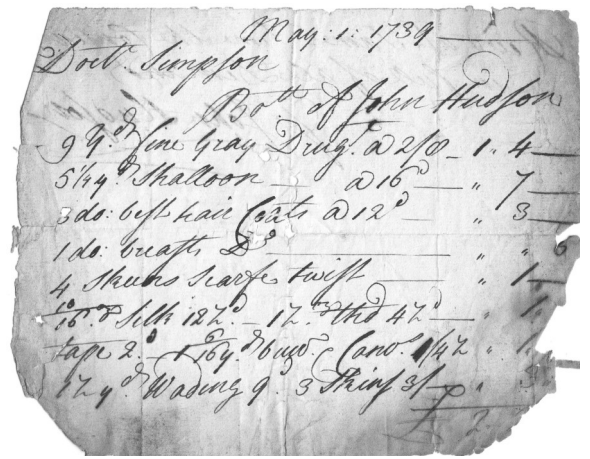 May: 1: 1739
Doctr Simpson
Bott of John Hudson
9 Yds fine Gray Drugt a 2/8 1 " 4
5 1/4 yds Shalloon a 16d " 7
3 do: best hair Coats a 12d " 3
1 do: breasts Do " " 6
4 Skeins Scarfe twist " 1
Silk 12 1/2d thd 4 1/2d " 1
tape 2d Canvs " 1
yd Wading 9 3 Skins 3/ " 3
2